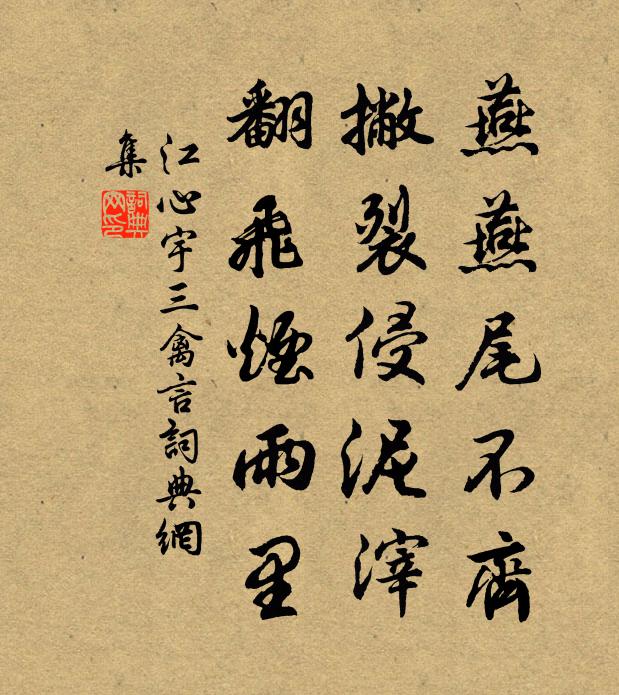 燕燕尾不齊
撇裂侵泥滓
翻飛煙雨里
江心宇三禽言詞典網
集
詞典
网印